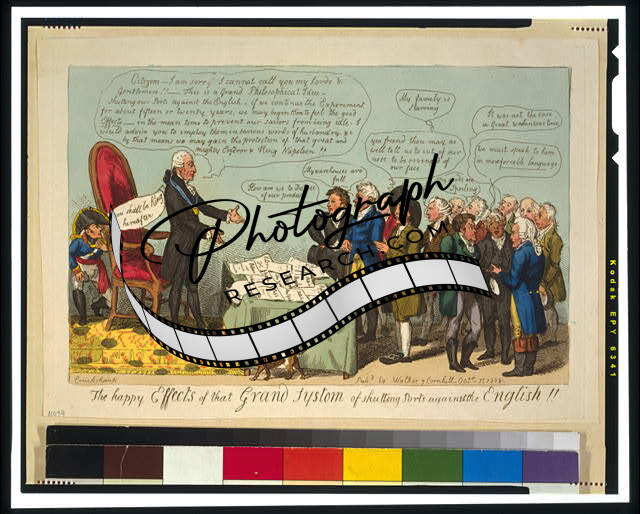 Citizen — I am sorry, I cannot call you my Lords &
Gentlemen.!! — This is a Grand Philosophical Idea —
shutting our Ports against the English. If we continue the Experiment
for about fifteen or twenty years, we may begin to feel the good
Effects — in the mean time to prevent our sailors from being idle. I
would advise you to employ them in various works of husbandry, &c
by that means we may gain the protection of that great and
mighty & King Napoleon !!
My family is
Starving
It was not the case
in Great Washingtons time
We must speak to him
in more forcible language
My warehouses are
full
How are we to
of our produce
friend thou may as
well tell us to cut of our
nose to be revenged of
our face
are
Spoiling
you shall be King
hereafter
Photograph
RESEARCH.COM
Cruikshank
Pubd by Walker 7 Cornhill Octr 15 1808
The happy Effects of that Grand System of shutting Ports against the English !!
Kodak EPY 6341